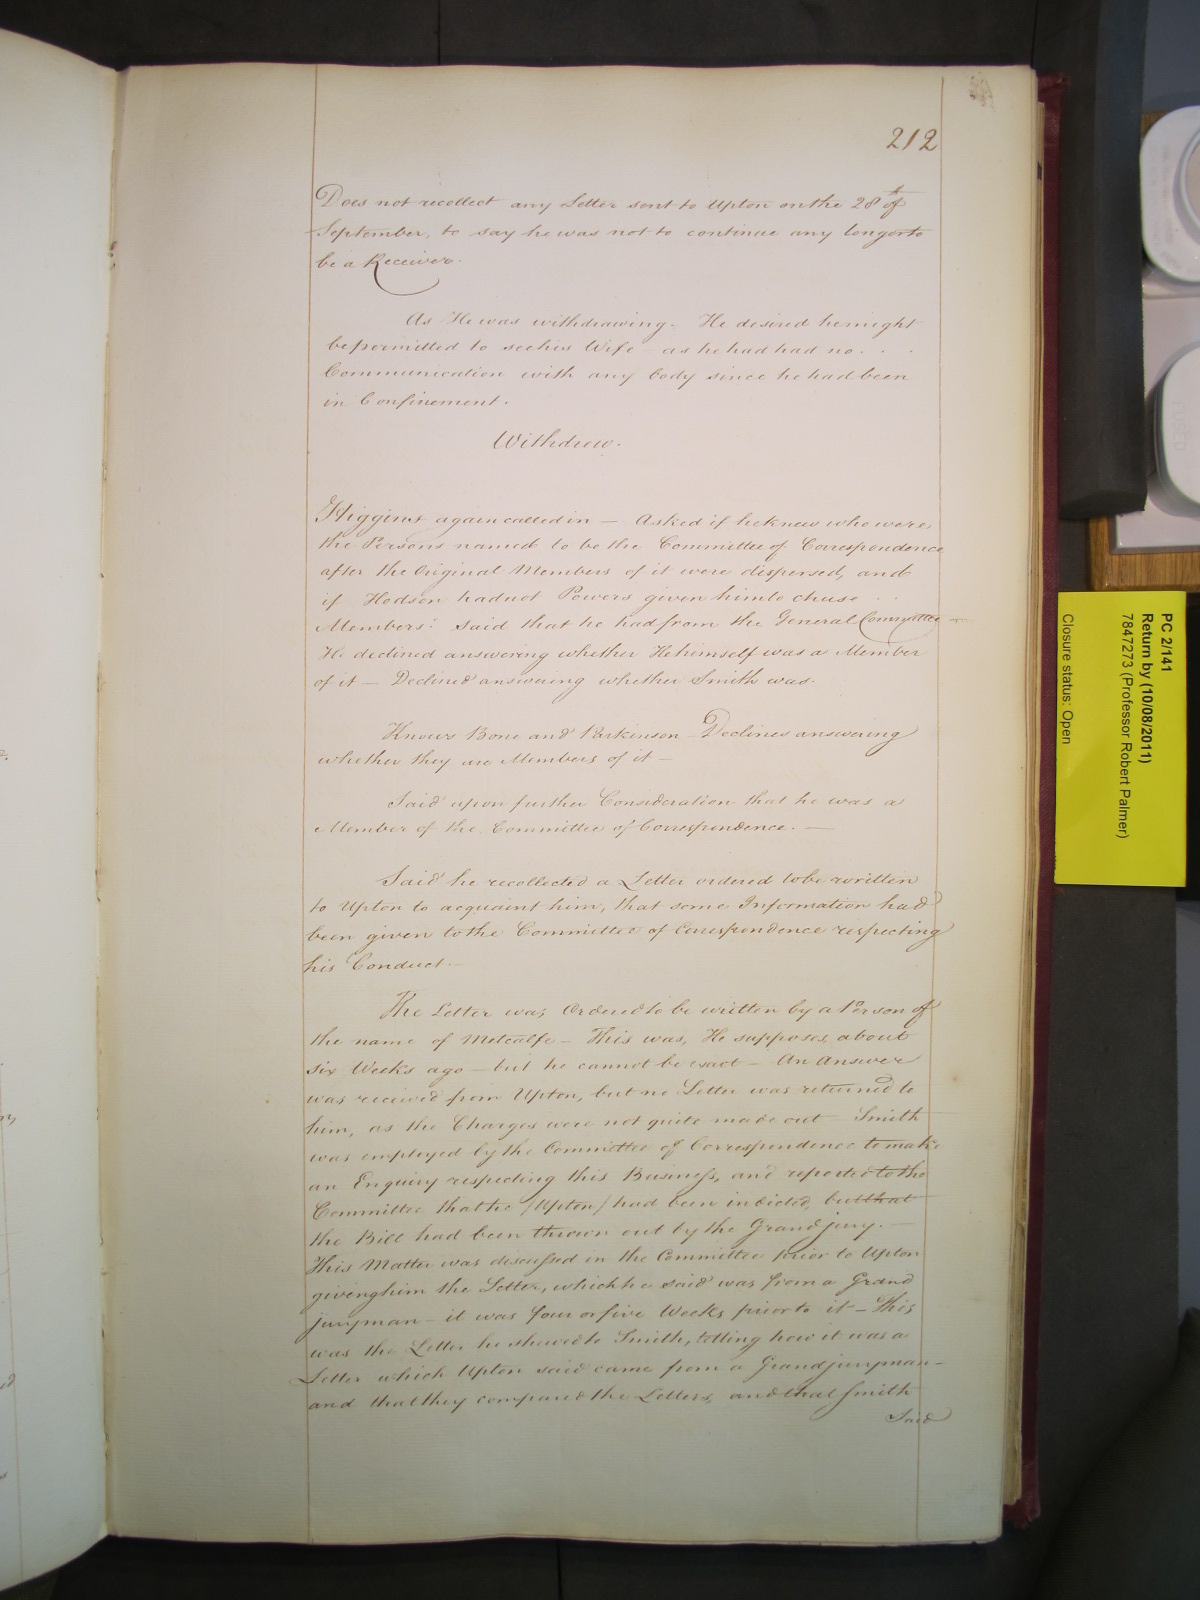 212
Does not recollect any Letter sent to Upton on the 28th of
September, to say he was not to continue any longer to
be a Receiver.
As He was withdrawing. He desired he might
be permitted to see his Wife – as he had had no . .
Communication with any body since he had been
in Confinement.
Withdrew.
Higgins again called in — Asked if he knew who were
the Persons named to be the Committee of Correspondence
after the Original Members of it were dispersed, and
if Hodson had not Powers given him to chuse . .
Members: Said that he had from the General Committee —
He declined answering whether He himself was a Member
of it — Declined answering whether Smith was.
Knows Bone and Parkinson – Declines answering
whether they are Members of it —
Said upon further Consideration that he was a
Member of the Committee of Correspondence. —
Said he recollected a Letter ordered to be written
to Upton to acquaint him, that some Information had
been given to the Committee of Correspondence respecting
his Conduct. —
The Letter was Ordered to be written by a Person of
the name of Metcalfe — This was, He supposes, about
six Weeks ago — but he cannot be exact — An Answer
was received from Upton, but no Letter was returned to
him, as the Charges were not quite made out – Smith
was employed by the Committee of Correspondence to make
an Enquiry respecting this Business, and reported to the
Committee that he /Upton/ had been indicted, but that
the Bill had been thrown out by the Grand jury. —
This Matter was discussed in the Committee prior to Upton
giving him the Letter, which he said was from a Grand
juryman — it was four or five Weeks prior to it — This
was the Letter he shewed to Smith, telling how it was a
Letter which Upton said came from a Grand juryman —
and that they compared the Letters, and that Smith
Said
PC 2/141
Return by (10/08/2011)
7847273 (Professor Robert Palmer)
Closure status: Open